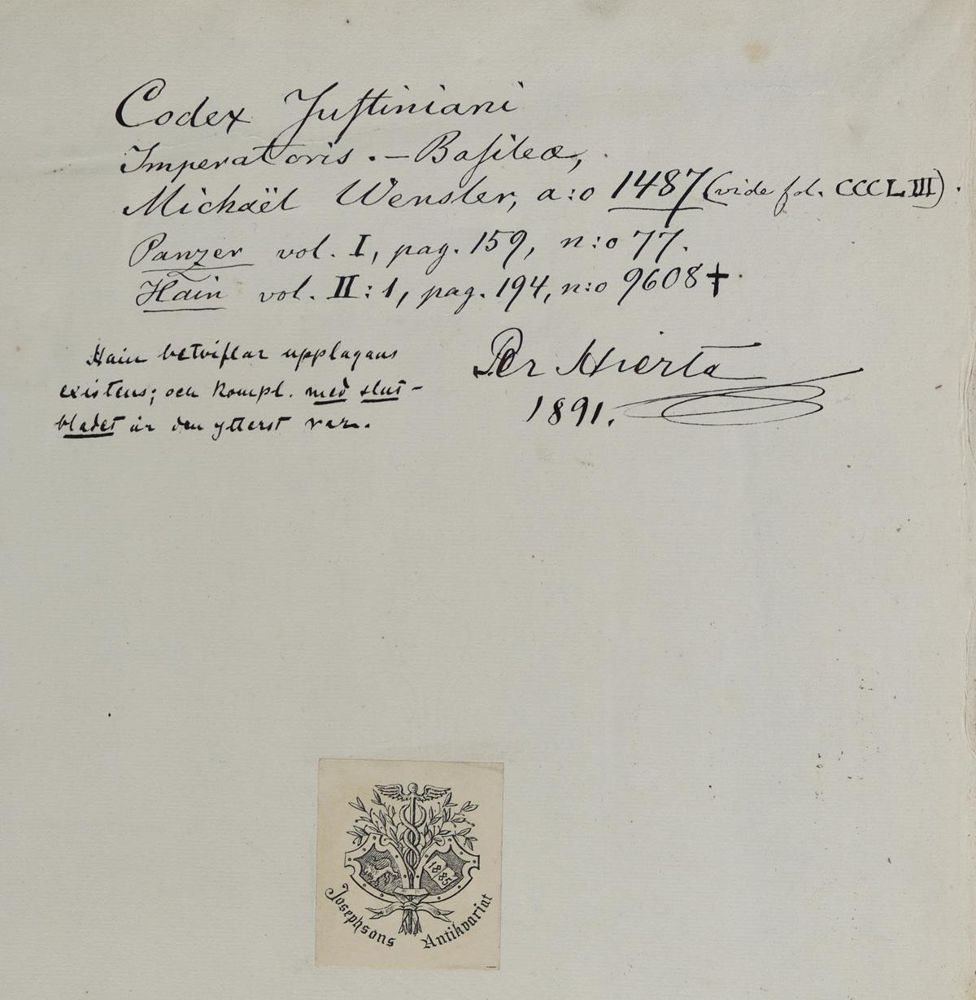 Codex Juſtiniani
Imperatoris. – Baſileæ,
Michaël Wensler, a:o 1487 (vide fol. CCCLIII).
Panzer vol. I, pag. 159, n:o 77.
Hain vol. II:1, pag. 194, n:o 9608 †.
Hain betviflar upplagans
existens; och kompl. med slut-
bladet är den ytterst rar.
Per Hierta
1891.
1885
Josephsons Antikvariat